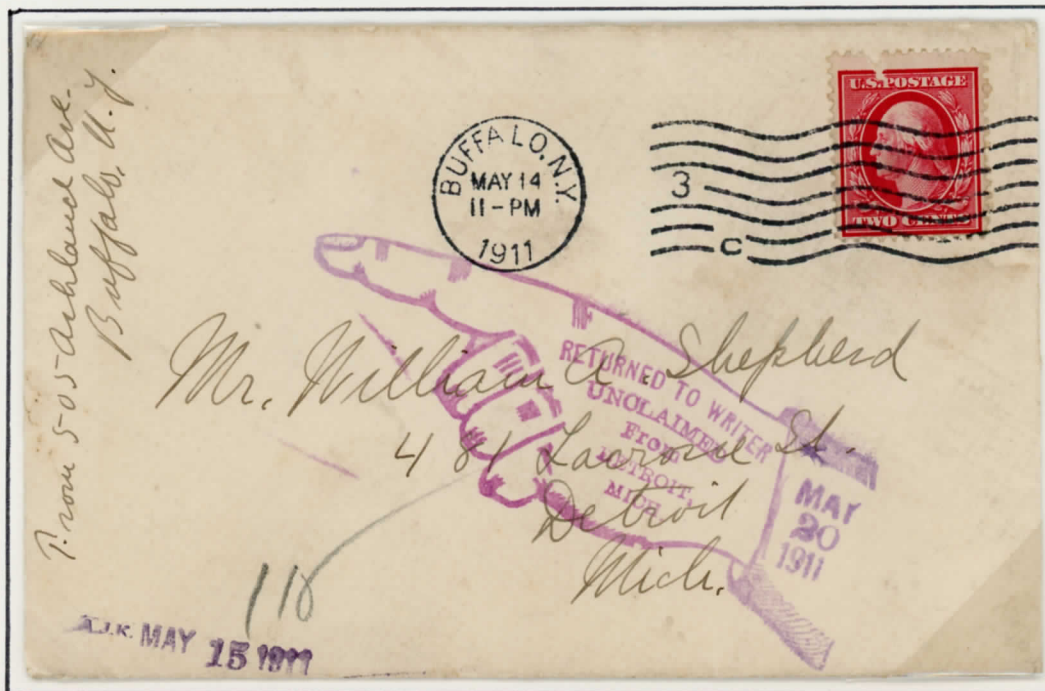 From 505 Ashland Ave.
Buffalo, N.Y.
BUFFALO, N.Y.
MAY 14
11-PM
1911
3
C
U.S. POSTAGE
TWO CENTS
Mr. William A. Shepherd
481 St.
Detroit
Mich.
RETURNED TO WRITER
UNCLAIMED
From
DETROIT,
MICH.
MAY
20
1911
118
A.J.K. MAY 15 1911